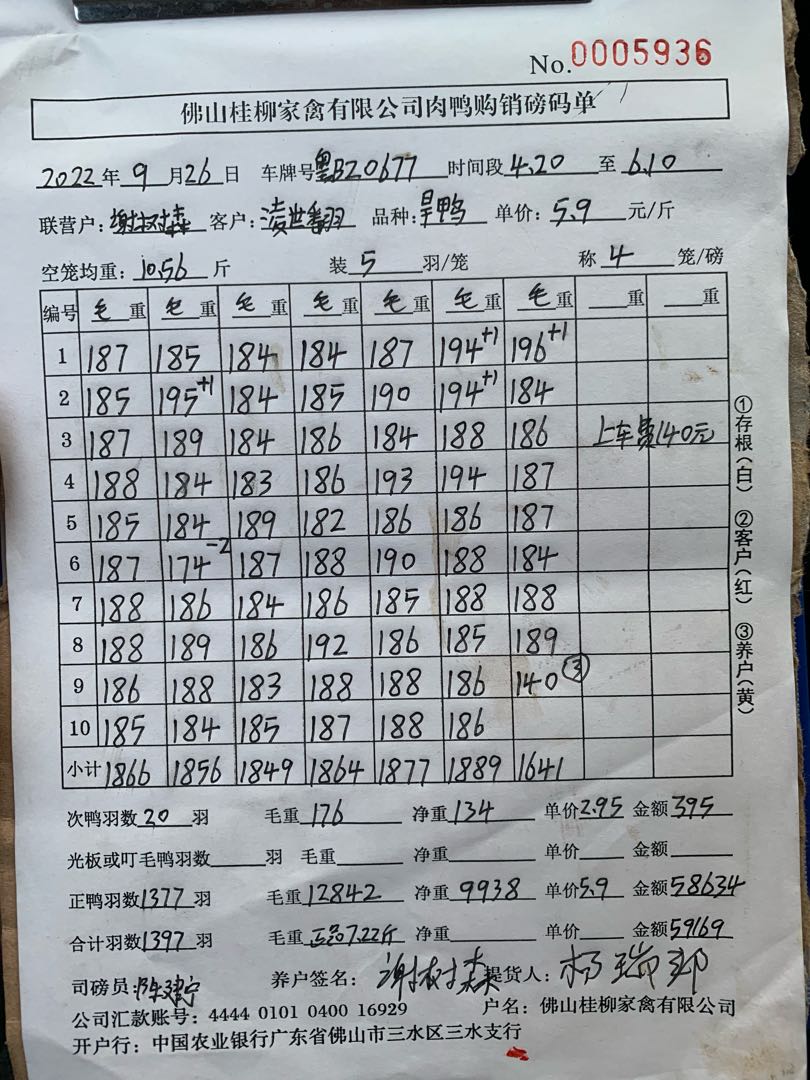 No.0005936
佛山桂柳家禽有限公司肉鸭购销磅码单
2022年9月26日 车牌号粤BZ0677 时间段4.20至6.10
联营户:谢树森 客户:凌世翻 品种:旱鸭 单价:5.9元/斤
空笼均重:10.56斤 装5羽/笼 称4笼/磅
编号 毛重 毛重 毛重 毛重 毛重 毛重 毛重 重 重
1 187 185 184 184 187 194+1 196+1
2 185 195+1 184 185 190 194+1 184
3 187 189 184 186 184 188 186 上车费140元
4 188 184 183 186 193 194 187
5 185 184 189 182 186 186 187
6 187 174-2 187 188 190 188 184
7 188 186 184 186 185 188 188
8 188 189 186 192 186 185 189
9 186 188 183 188 188 186 140③
10 185 184 185 187 188 186
小计 1866 1856 1849 1864 1877 1889 1641
①存根(白) ②客户(红) ③养户(黄)
次鸭羽数20羽 毛重176 净重134 单价2.95 金额395
光板或叮毛鸭羽数 羽 毛重 净重 单价 金额
正鸭羽数1377羽 毛重12842 净重9938 单价5.9 金额58634
合计羽数1397羽 毛重正品7.22斤 净重 单价 金额59169
司磅员: 养户签名:谢树森 提货人:杨瑞邦
公司汇款账号:4444 0101 0400 16929 户名:佛山桂柳家禽有限公司
开户行:中国农业银行广东省佛山市三水区三水支行